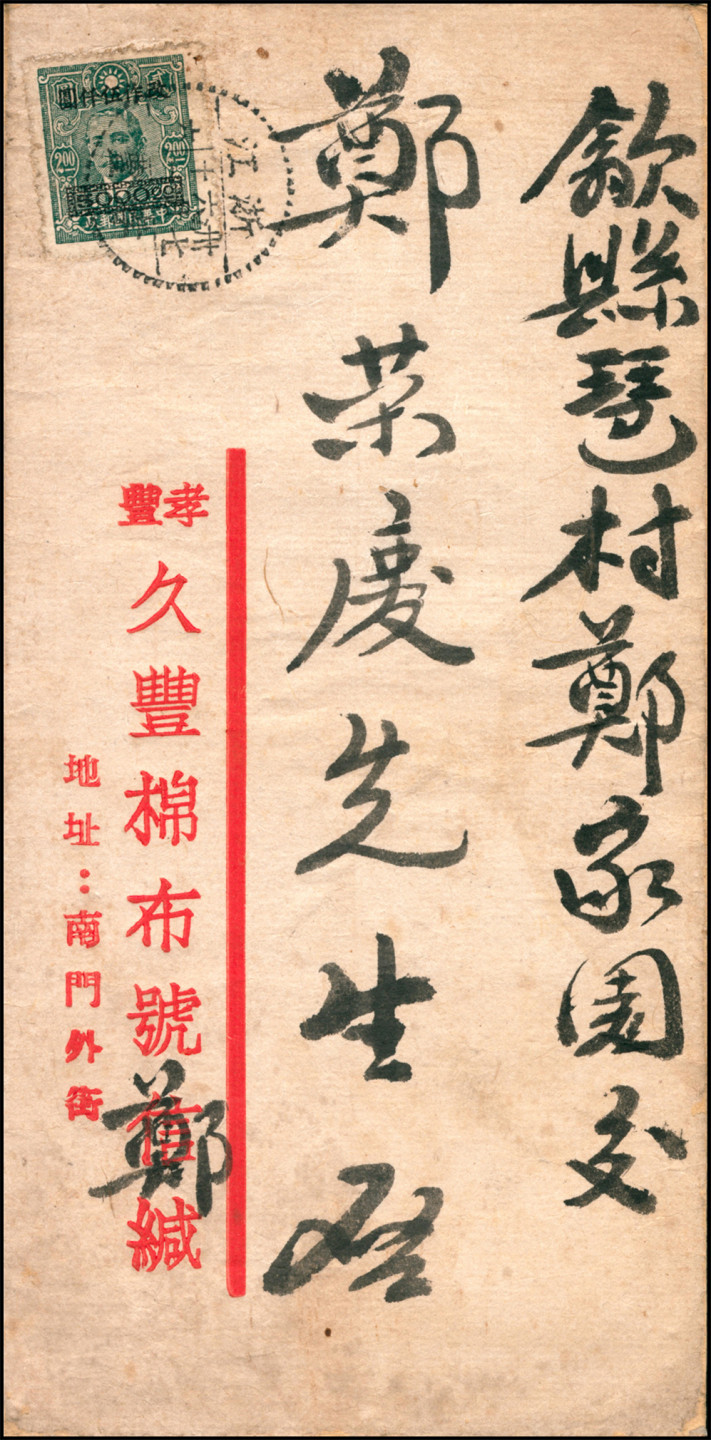 歙縣琶村鄭家園交
鄭荣慶先生啓
孝豐
久豐棉布號信緘
鄭
地址：南門外街
改作伍仟圓
200 200
5000.00
浙江